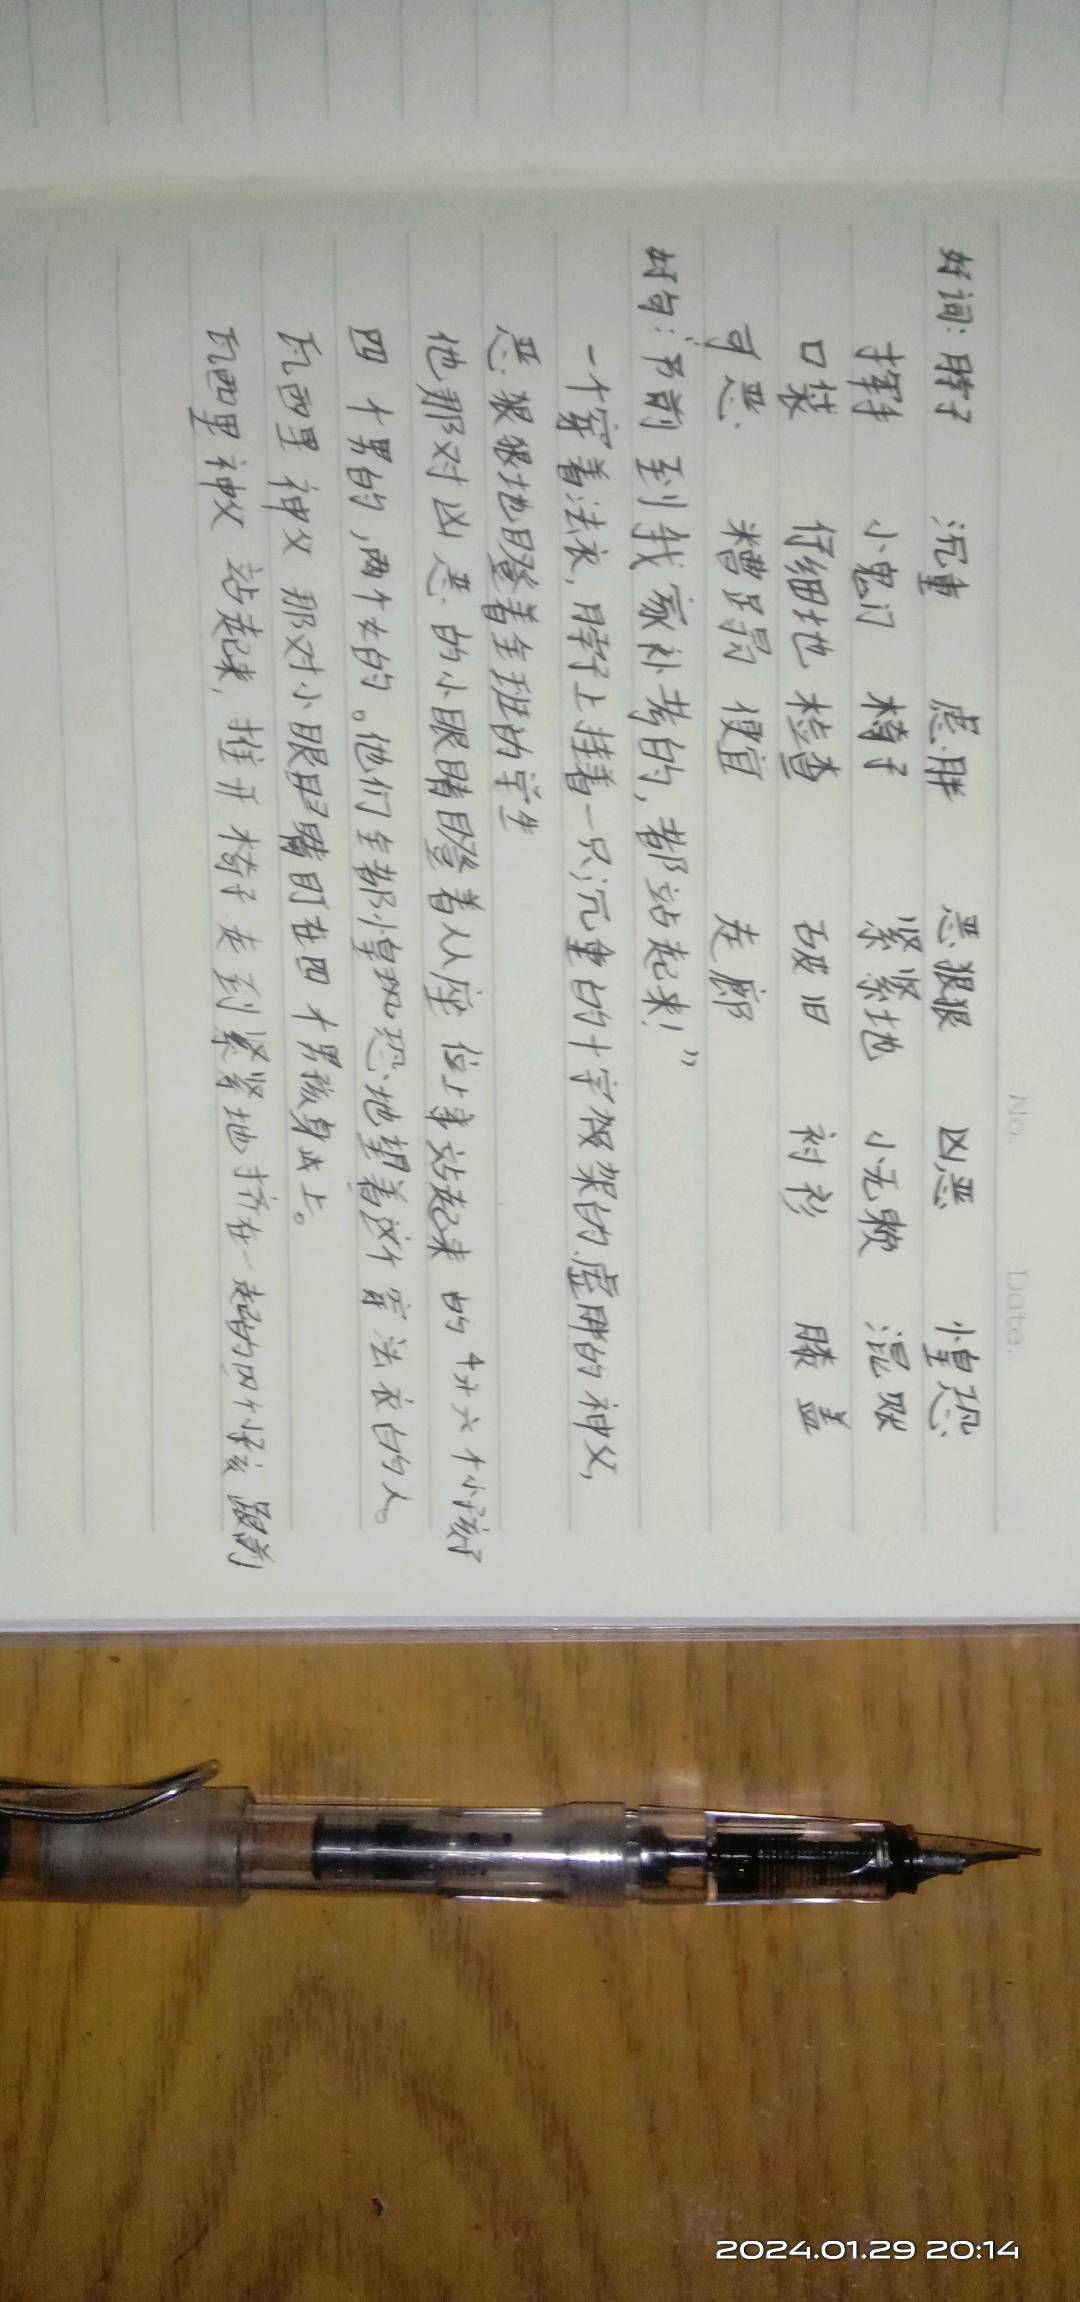 No.
Date.
好词：脖子 沉重 虚胖 恶狠狠 凶恶 惶恐
挥手 小鬼们 椅子 紧紧地 小无赖 混账
口袋 仔细地 检查 破旧 衬衫 膝盖
可恶 糟蹋 便宜 走廊
好句：“节前到我家补考的，都站起来！”
一个穿着法衣，脖子上挂着一只沉重的十字架的虚胖的神父，
恶狠狠地瞪着全班的学生
他那对凶恶的小眼睛瞪着从座位上站起来的六个小孩子
四个男的，两个女的。他们全都惶恐地望着这个穿法衣的人。
瓦西里神父那对小眼睛盯在四个男孩身上。
瓦西里神父站起来，推开椅子走到紧紧地挤在一起的四个小孩跟前
2024.01.29 20:14